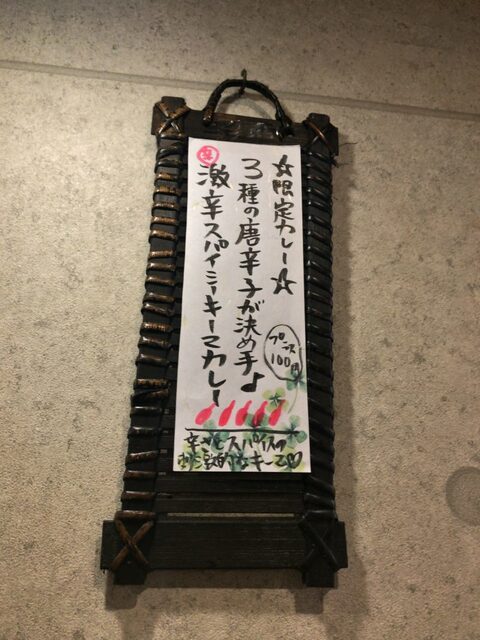 ☆限定カレー☆
3種の唐辛子が決め手♪
激辛スパイシーキーマカレー
プラス
100円
辛さとスパイスの
刺激的なキーマ♡